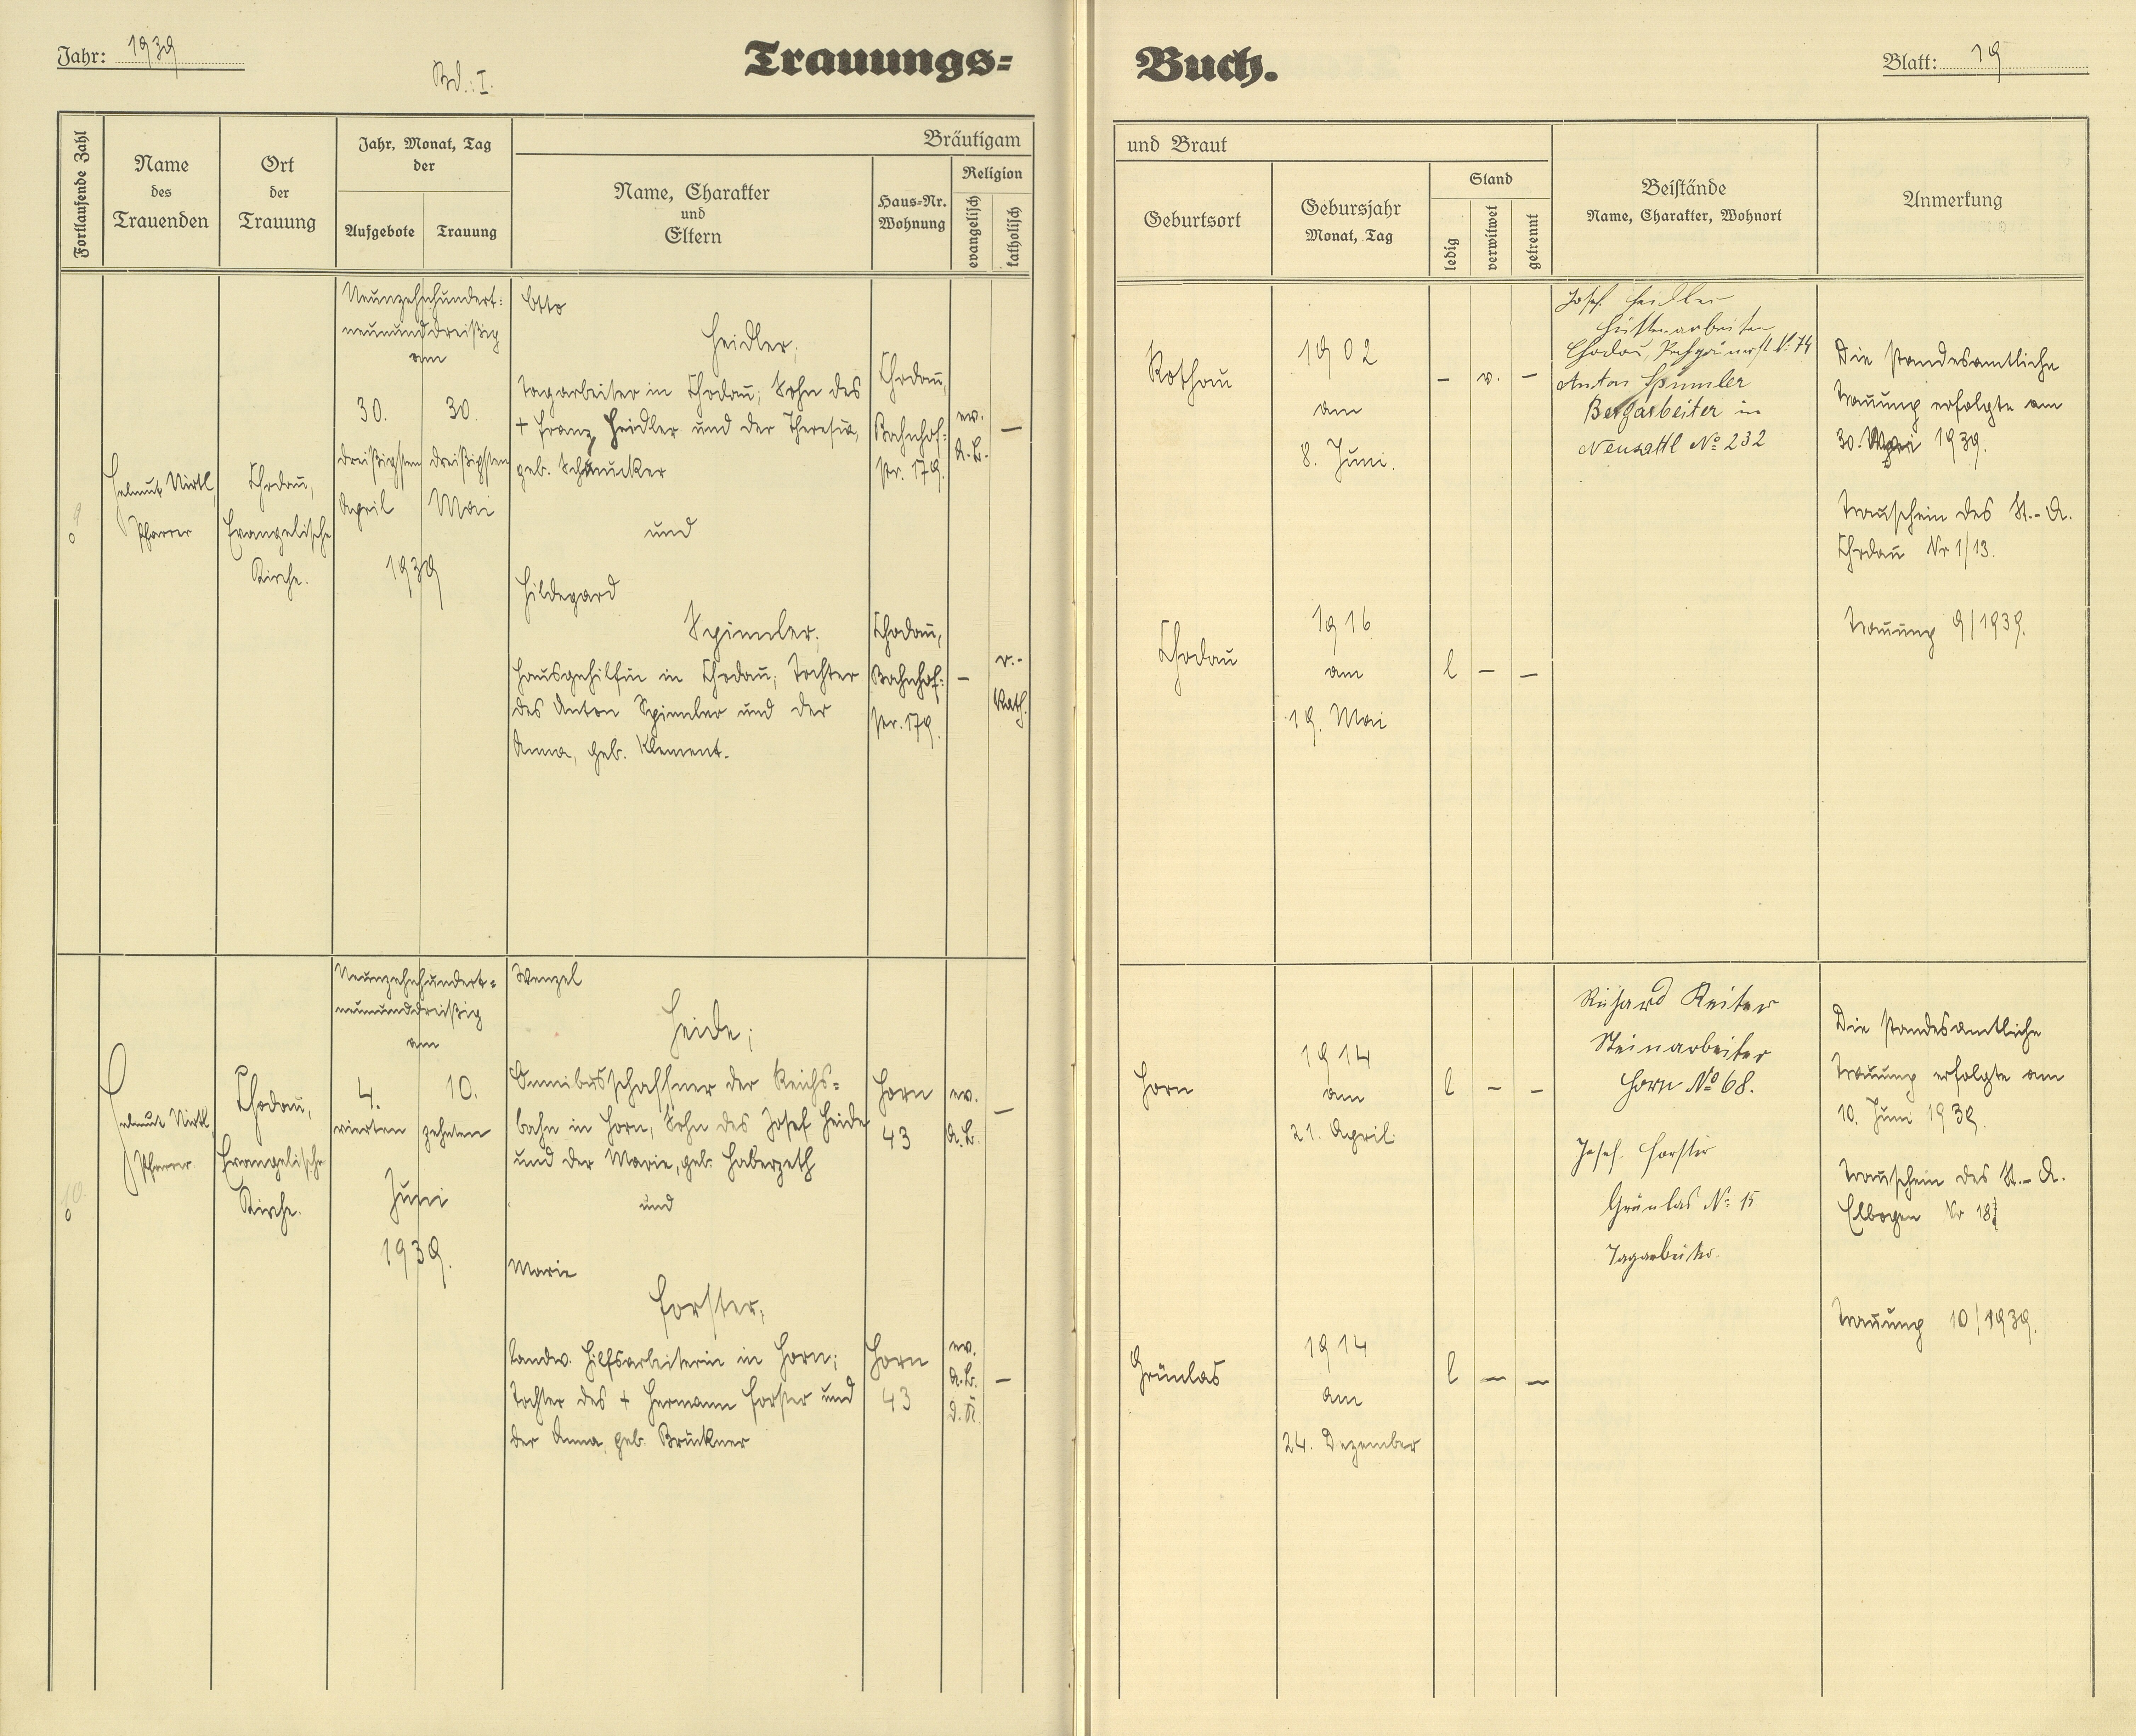 Jahr: 1939
Bd.: I.
Trauungs=
Buch.
Blatt: 19
Fortlaufende Zahl
Name
des
Trauenden
Ort
der
Trauung
Jahr, Monat, Tag
der
Aufgebote
Trauung
Bräutigam
Name, Charakter
und
Eltern
Haus=Nr.
Wohnung
Religion
evangelisch
katholisch
und Braut
Geburtsort
Gebursjahr
Monat, Tag
Stand
ledig
verwitwet
getrennt
Beistände
Name, Charakter, Wohnort
Anmerkung
9
Helmut Nirtl,
Pfarrer
Chodau,
Evangelische
Kirche.
Neunzehnhundert=
neununddreißig
am
30.
dreißigsten
April
30.
dreißigsten
Mai
1939
Otto
Heidler;
Tagarbeiter in Chodau; Sohn des
+ Franz Heidler und der Theresia,
geb. Schmucker
und
Hildegard
Spimler;
Hausgehilfin in Chodau; Tochter
des Anton Spimler und der
Anna, geb. Klement.
Chodau,
Bahnhof=
str. 179.
ev.
A.B.
–
Chodau,
Bahnhof=
str. 179.
–
r.-
kath.
Rothau
1902
am
8. Juni.
– v. –
Chodau
1916
am
19. Mai
l – –
Josef Heidler
Hüttenarbeiter
Chodau, N: 74
Anton Spimler
Bergarbeiter in
Neusattl No 232
Die standesamtliche
Trauung erfolgte am
30. Mai 1939.
Trauschein des St.-A.
Chodau Nr 1/13.
Trauung 9/1939.
10.
Helmut Nirtl,
Pfarrer
Chodau,
Evangelische
Kirche.
Neunzehnhundert=
neununddreißig
am
4.
vierten
10.
zehnten
Juni
1939.
Wenzel
Heide;
Omnibusschaffner der Reichs=
bahn in Horn, Sohn des Josef Heide
und der Marie, geb. Haberzeth
und
Marie
Forster;
landw. Hilfsarbeiterin in Horn;
Tochter des + Hermann Forster und
der Anna, geb. Brückner
Horn
43
ev.
A.B.
–
Horn
43
ev.
A.B.
d.K.
–
Horn
1914
am
21. April.
l – –
Grünlas
1914
am
24. Dezember
l – –
Richard Reiter
Steinarbeiter
Horn No 68.
Josef Forster
Grünlas N: 15
Tagarbeiter.
Die standesamtliche
Trauung erfolgte am
10. Juni 1939.
Trauschein des St.-A.
Elbogen Nr
Trauung 10/1939.